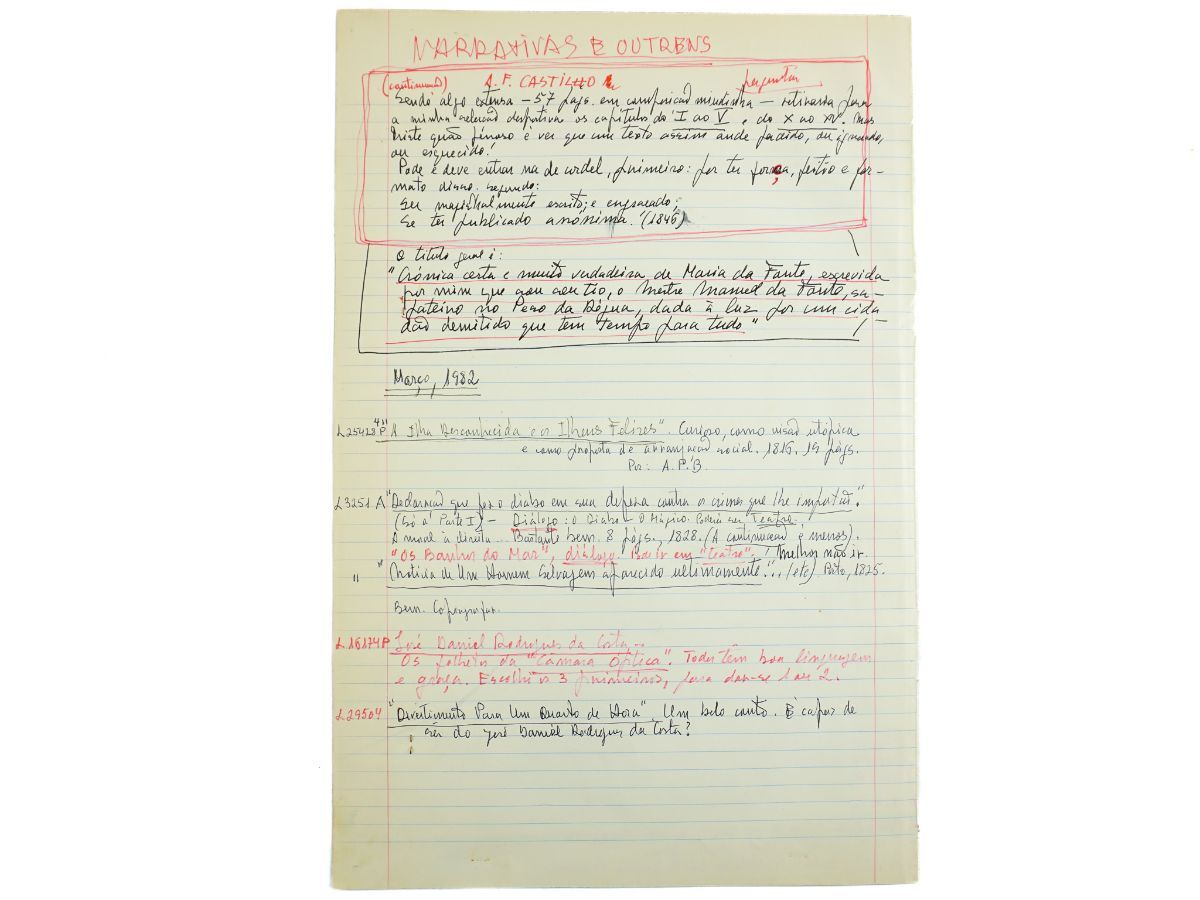 NARRATIVAS E OUTRENS
(continuad) A. F. CASTILHO
Sendo algo extensa — 57 págs. em composição miudinha — retiraria para
a minha selecção desportiva os capítulos do I ao V, e do X ao XV. Mas
triste quão penoso é ver que um texto assim ande perdido, ou ignorado,
ou esquecido!
Pode e deve entrar na de cordel, primeiro: por ter forma, feitio e for-
mato disso. Segundo:
Ser magistralmente escrito; e engraçado;
Se ter publicado anónima. (1846)
O título geral é:
"Crónica certa e muito verdadeira de Maria da Fonte, escrevida
por mim que sou seu tio, o Mestre Manuel da Fonte, sa-
pateiro no Peso da Régua, dada à luz por um cida
dão demitido que tem tempo para tudo"
Março, 1982
L25428P "A Ilha Desconhecida e os Ilheus Felizes". Curioso, como visão utópica
e como proposta de arranjação social. 1816. 19 págs.
Por: A.P.B.
L3251 A "Declaração que fez o diabo em sua defeza contra os crimes que lhe imputam."
(Só a Parte I) — Diálogo: O Diabo — O Mágico. Poderia ser Teatro.
A moral à direita... Bastante bem. 8 págs., 1828. (A continuação é menos).
"Os Banhos do Mar", diálogo. Pode ir em "teatro". ! Melhor não ir.
" "Noticia de Um Homem Selvagem aparecido ultimamente"... (etc) Porto, 1825.
Bem.
L.16174P José Daniel Rodrigues da Costa...
Os folhetos da "Câmara Óptica". Todos têm boa linguagem
e graça. Escolhi os 3 primeiros, para dar-se 1 ou 2.
L29504 "Divertimento Para Um Quarto de Hora". Um belo conto. É capaz de
ser do José Daniel Rodrigues da Costa?